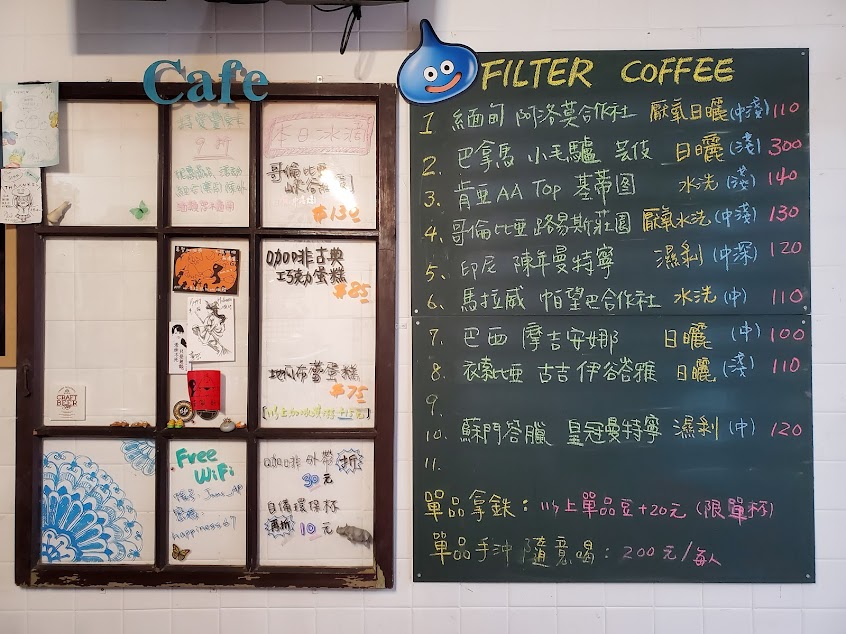 Cafe
9折
本日冰滴
哥倫比亞
$130
咖啡古典
巧克力蛋糕
$85
蛋糕
$75
CRAFT
BEER
Free
WiFi
happiness67
咖啡外帶折
30元
自備環保杯
再折 10元
FILTER COFFEE
1 緬甸 阿洛莫合作社 厭氧日曬 (中淺) 110
2. 巴拿馬 小毛驢 芸伎 日曬 (淺) 300
3. 肯亞AA Top 基蒂圖 水洗 (淺) 140
4. 哥倫比亞 路易斯莊園 厭氧水洗 (中淺) 130
5. 印尼 陳年曼特寧 濕剝 (中深) 120
6. 馬拉威 帕望巴合作社 水洗 (中) 110
7. 巴西 摩吉安娜 日曬 (中) 100
8. 衣索比亞 古吉 伊谷荅雅 日曬 (淺) 110
9.
10. 蘇門答臘 皇冠曼特寧 濕剝 (中) 120
11.
單品拿鉄：以上單品豆+20元 (限單杯)
單品手沖 隨意喝：200元/每人